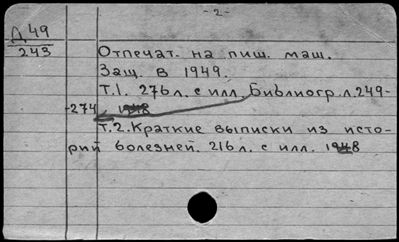 -2-
Д.49
243
Отпечат. на пиш. маш.
Защ. в 1949.
Т.1. 276 л. с илл. Библиогр. л. 249-
-274.
Т.2. Краткие выписки из исто-
рий болезней. 216 л. с илл. 1948